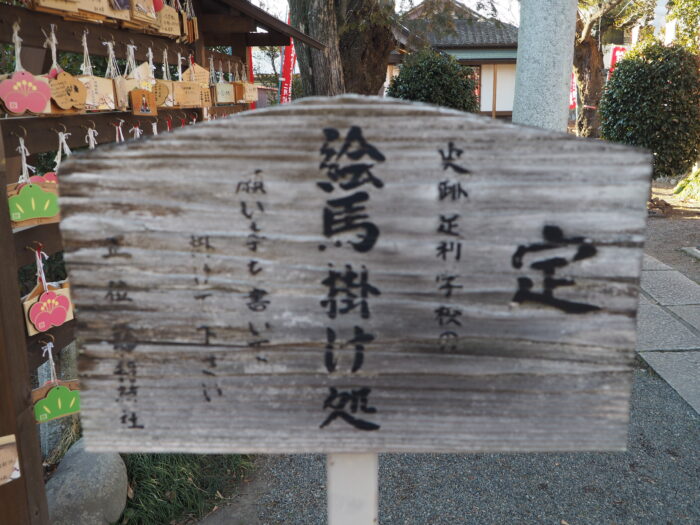 定
史跡足利学校の
絵馬掛け処
願い事を書いて
掛けて下さい
正一位 稲荷社